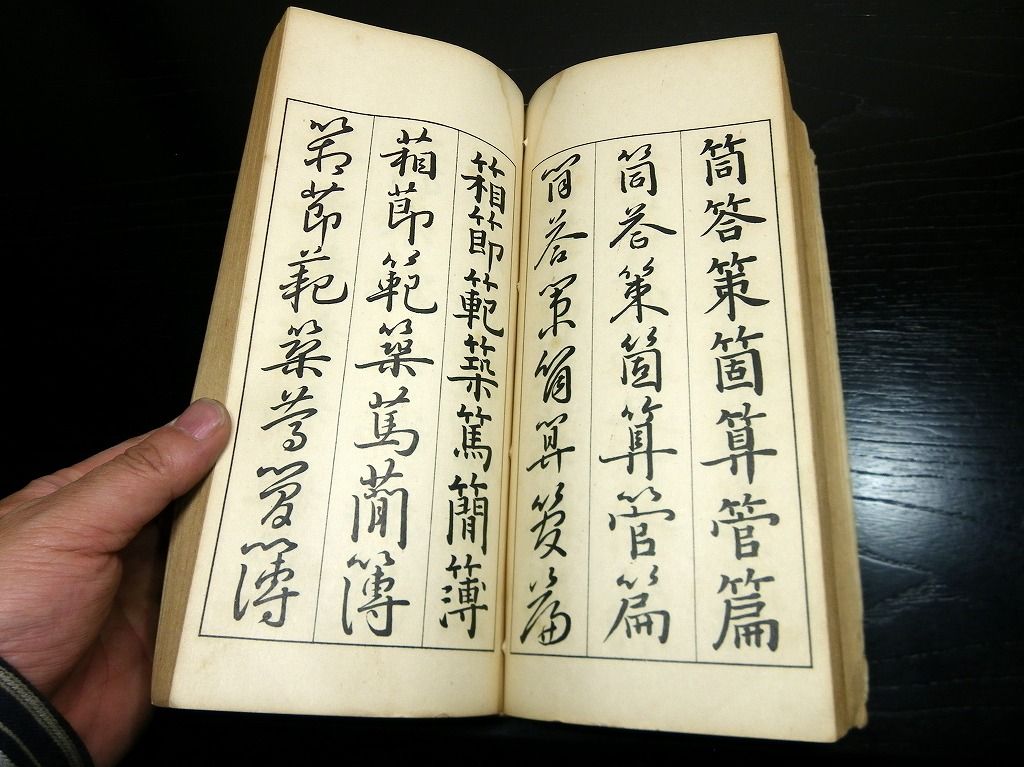 筒答策箇算管篇
筒答策箇算管篇
筒答策箇算管篇
箱節範築篤簡簿
箱節範築篤簡簿
箱節範築篤簡簿